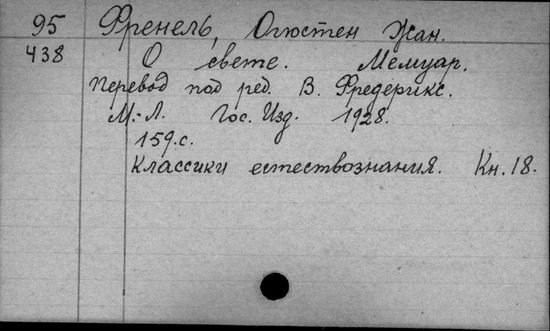 95 Френель, Огюстен Жан.
438 О свете. Мемуар.
Перевод под ред. В. Фредерикс.
М.-Л. Гос. Изд. 1928.
159.с.
Классики естествознания. Кн. 18.